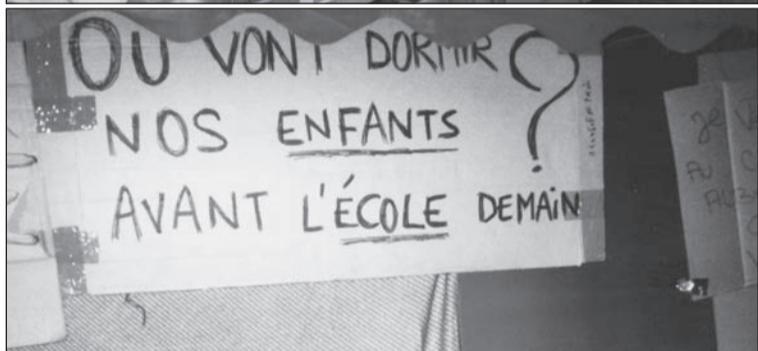 OU VONT DORMIR ?
NOS ENFANTS
AVANT L'ÉCOLE DEMAIN
je
AU